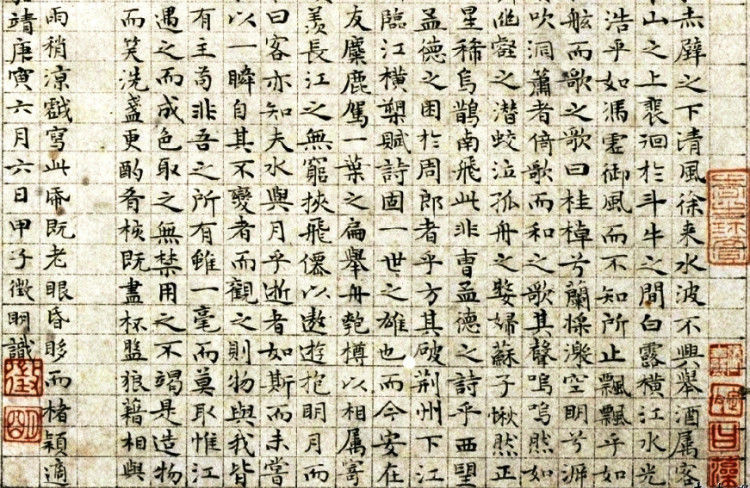 赤壁之下清風徐来水波不興舉酒属客
山之上裵徊於斗牛之間白露橫江水光
浩乎如馮虗御風而不知所止飄飄乎如
舷而歌之歌曰桂棹兮蘭槳擊空明兮泝
吹洞簫者倚歌而和之歌其聲嗚嗚然如
幽壑之潜蛟泣孤舟之嫠婦蘇子愀然正
星稀烏鵲南飛此非曹孟德之詩乎西望
孟德之困於周郎者乎方其破荊州下江
臨江橫槊賦詩固一世之雄也而今安在
友麋鹿駕一葉之扁舉舟匏樽以相属寄
羨長江之無窮挾飛僊以遨遊抱明月而
曰客亦知夫水與月乎逝者如斯而未嘗
以一瞬自其不變者而觀之則物與我皆
有主苟非吾之所有雖一毫而莫取惟江
遇之而成色取之無禁用之不竭是造物
而笑洗盞更酌肴核既盡杯盤狼藉相與
雨稍涼戲寫此帋既老眼昏眵而楮穎適
靖庚寅六月六日甲子徵明識
徵
明